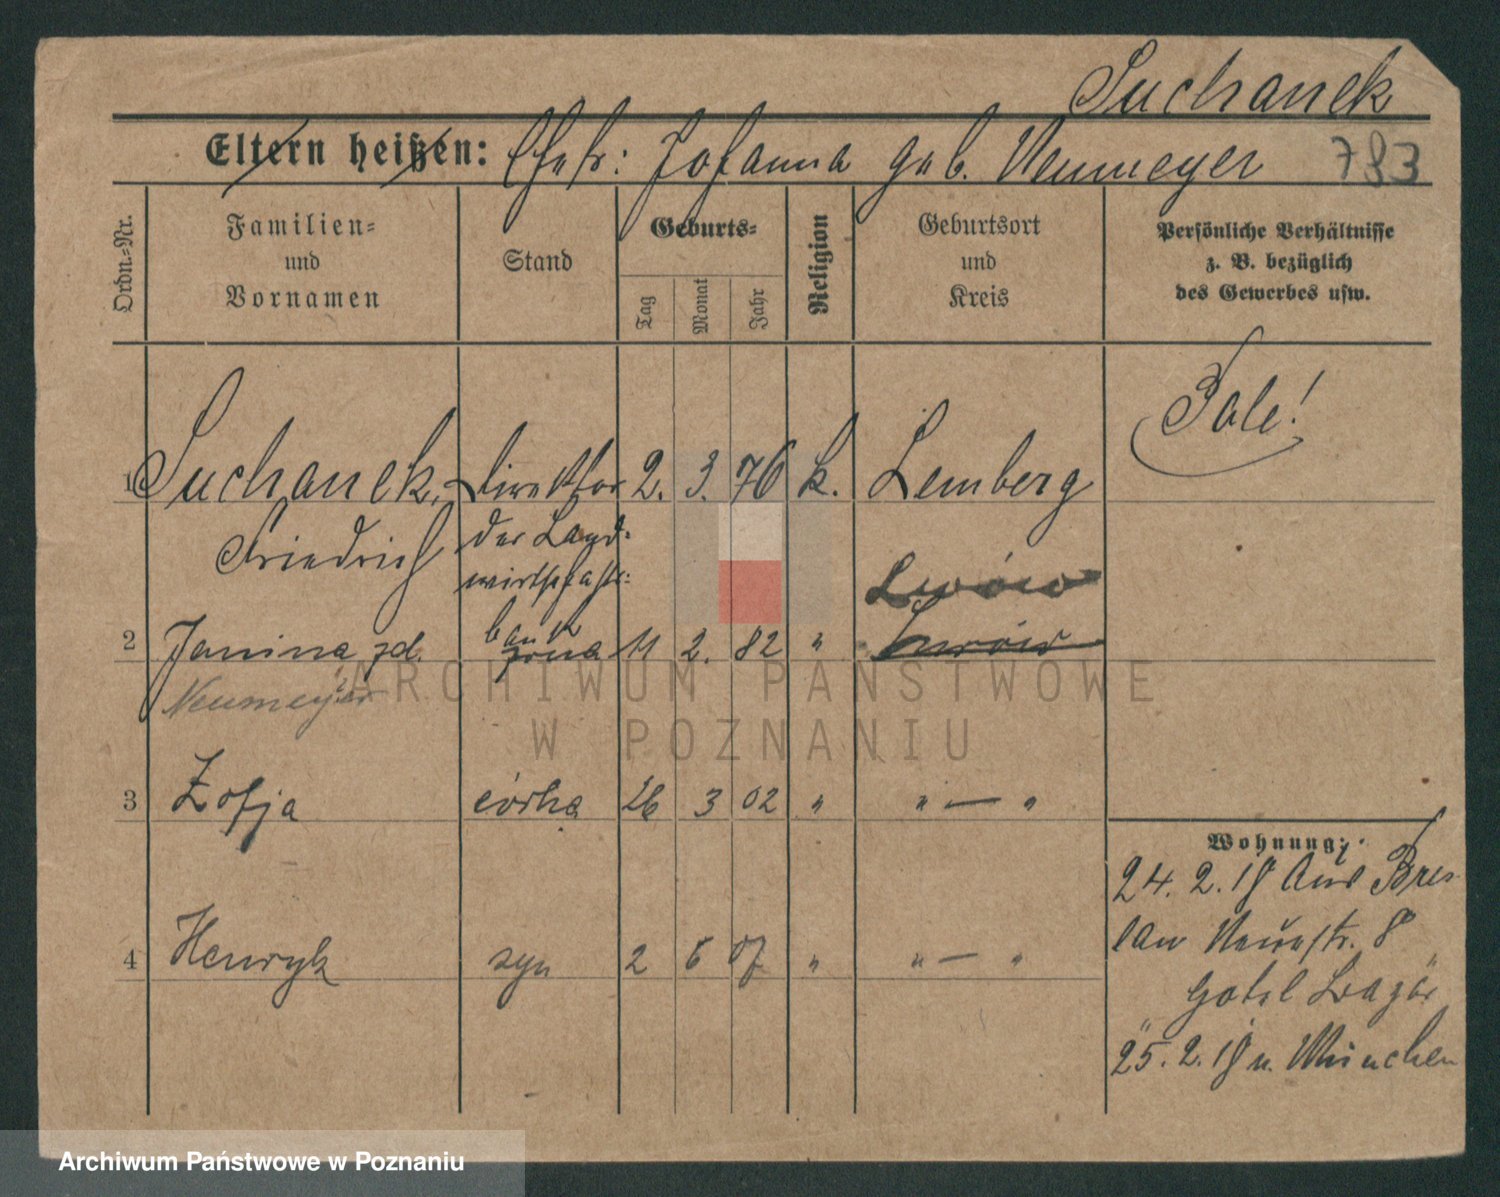 Suchanek
Eltern heißen: Ehefr: Johanna geb. Neumeyer 783
Ordn.-Nr.
Familien-
und
Vornamen
Stand
Geburts-
Tag
Monat
Jahr
Religion
Geburtsort
und
Kreis
Persönliche Verhältnisse
z. B. bezüglich
des Gewerbes usw.
Pole!
1 Suchanek, Direktor 2. 3. 76 k. Lemberg
Friedrich der Land-
wirtschafts-
bank
Lwów
2 Janina zd. żona 11 2. 82 " Lwów
Neumeyer
3 Zofja córka 26 3 02 " " — "
4 Henryk syn 2 6 07 " " — "
Wohnung:
24. 2. 19 aus Bres
lau Neuestr. 8
Hotel
25. 2. 19 n. München
ARCHIWUM PAŃSTWOWE
W POZNANIU
Archiwum Państwowe w Poznaniu